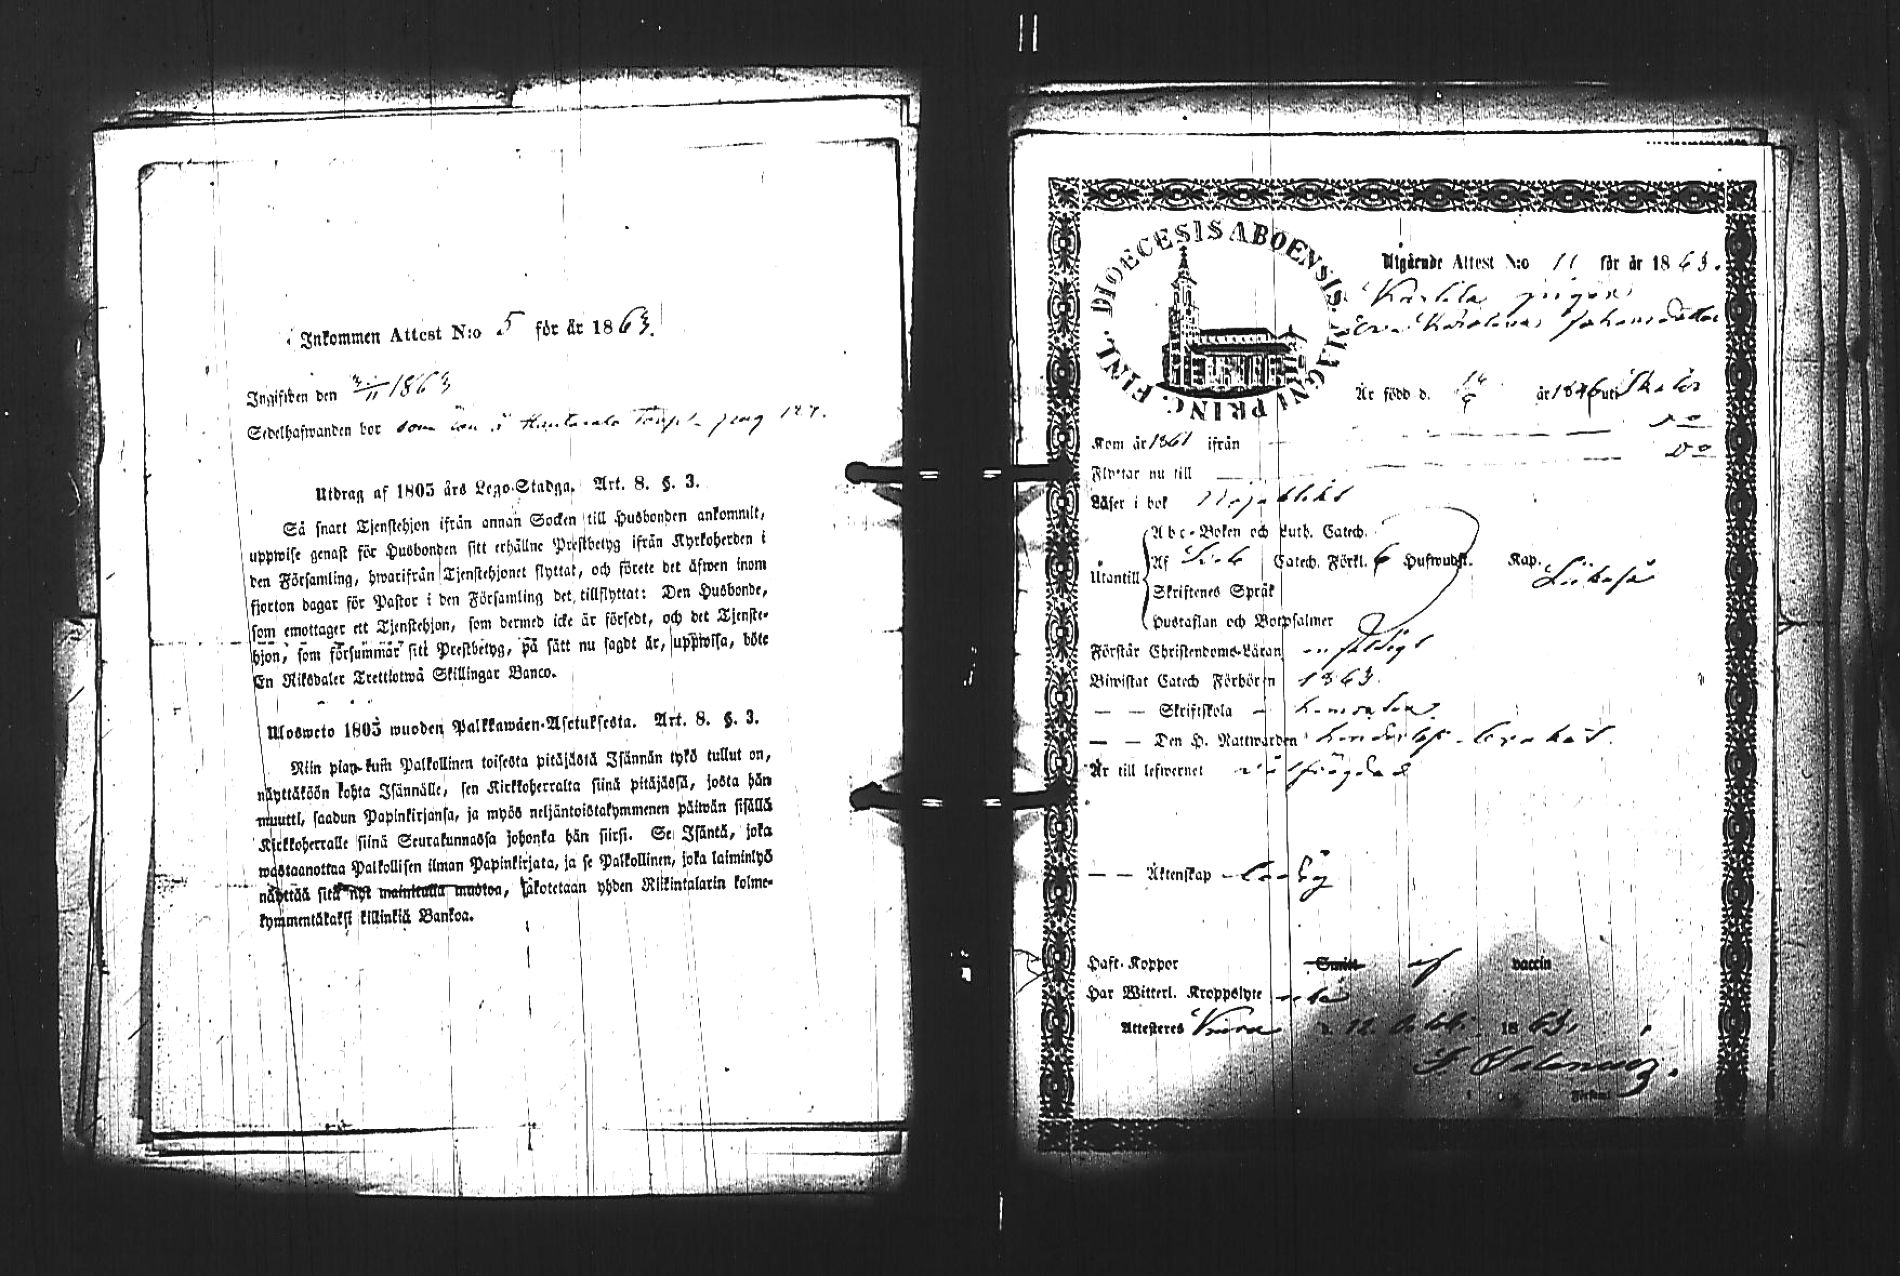 Inkommen Attest N:o 5 för år 1863.
Ingifven den 1863
Sedelhafwanden bor som i Torp pag 127.
Utdrag af 1805 års Lego-Stadga. Art. 8. §. 3.
Så snart Tjenstehjon ifrån annan Socken till Husbonden ankommit,
uppwise genast för Husbonden sitt erhållne Prestbetyg ifrån Kyrkoherden i
den Församling, hwarifrån Tjenstehjonet flyttat, och förete det äfwen inom
fjorton dagar för Pastor i den Församling det tillflyttat: Den Husbonde,
som emottager ett Tjenstehjon, som dermed icke är försedt, och det Tjenste-
hjon, som försummar sitt Prestbetyg, på sätt nu sagdt är, uppwisa, böte
En Riksdaler Trettiotwå Skillingar Banco.
Ulosweto 1805 wuoden Palkkawäen-Asetuksesta. Art. 8. §. 3.
Niin pian kuin Palkollinen toisesta pitäjästä Isännän tykö tullut on,
näyttäköön kohta Isännälle, sen Kirkkoherralta siinä pitäjässä, josta hän
muutti, saadun Papinkirjansa, ja myös neljäntoistakymmenen päiwän sisällä
Kirkkoherralle siinä Seurakunnassa johonka hän siirsi. Se Isäntä, joka
wastaanottaa Palkollisen ilman Papinkirjata, ja se Palkollinen, joka laiminlyö
näyttää sitä nyt mainitulla muotoa, sakotetaan yhden Riikintalarin kolme-
kymmentäkaksi killinkiä Bankoa.
FINL. DIOECESIS ABOENSIS MAGNI PRINC.
Utgående Attest N:o 11 för år 1863.
pigan
Eva Karolina Johansdotter
Är född d. år 1846 uti
Kom år 1861 ifrån Do
Flyttar nu till Do
Läser i bok Nöjaktigt
Utantill
Abc-Boken och Luth. Catech.
Af Catech. Förkl. 6 Hufwudst. Kap.
Skriftenes Språk
Hustaflan och Botpsalmer
Förstår Christendoms-Läran enfaldigt
Biwistat Catech Förhören 1863.
— — Skriftskola —
— — Den H. Nattwarden
Är till lefwernet välfrägdad
— — Äktenskap ledig
Haft Koppor Smitt af vaccin
Har Witterl. Kroppslyte
Attesteres 12 Octob. 1863.